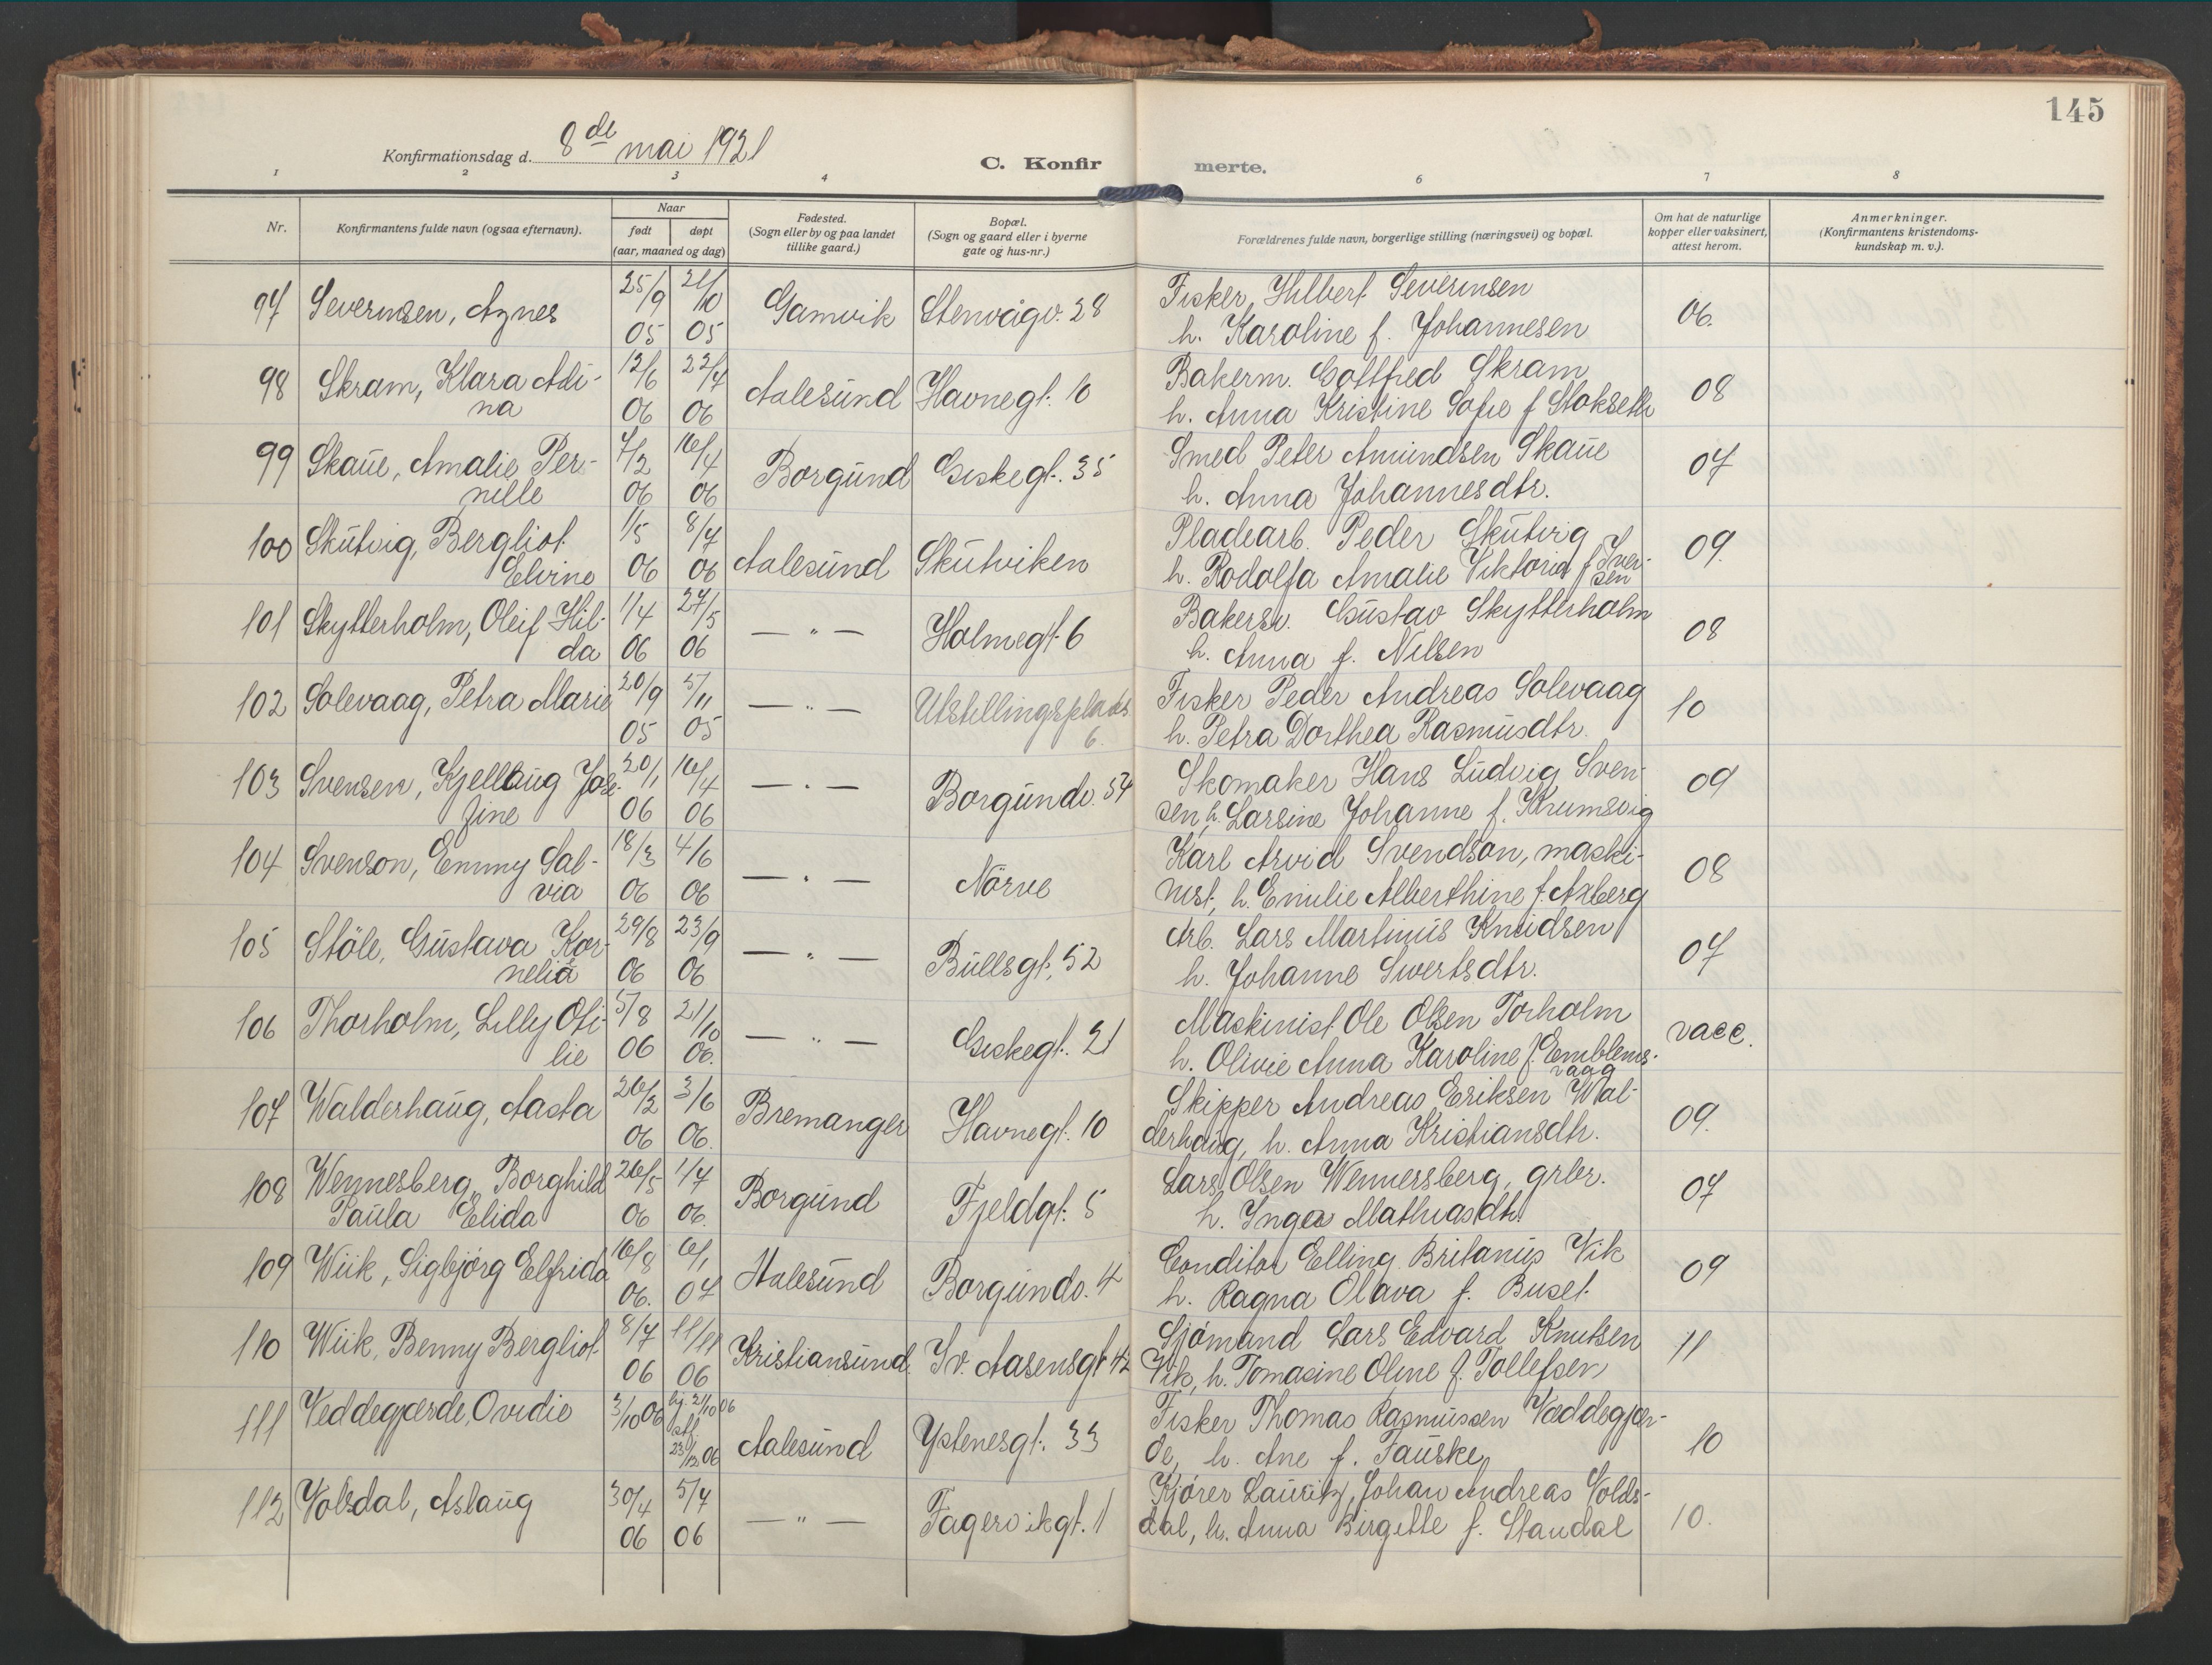 145
Konfirmationsdag d. 8de mai 1921
C. Konfirmerte.
1 2 3 4 6 7 8
Nr. Konfirmantens fulde navn (ogsaa efternavn). Naar født døpt (aar, maaned og dag) Fødested. (Sogn eller by og paa landet tillike gaard.) Bopæl. (Sogn og gaard eller i byerne gate og hus-nr.) Forældrenes fulde navn, borgerlige stilling (næringsvei) og bopæl. Om hat de naturlige kopper eller vaksinert, attest herom. Anmerkninger. (Konfirmantens kristendoms-kundskap m. v.).
97 Severinsen, Agnes 25/9 05 21/10 05 Gamvik Stenvågv. 28 Fisker Hilbert Severinsen
h. Karoline f. Johannesen 06.
98 Skram, Klara Adi- 12/6 06 22/7 06 Aalesund Havnegt. 10 Bakerm. Gottfred Skram
na h. Anna Kristine Sofie f Stokseth 08
99 Skaue, Amalie Per- 7/2 06 16/4 06 Borgund Giskegt. 35 Smed Peter Amundsen Skaue
nille h. Anna Johannesdtr. 07
100 Skutvig, Bergliot 1/5 06 8/7 06 Aalesund Skutviken Pladearb. Peder Skutvig
Elvine h. Rodolfa Amalie Viktoria f Iver-
sen 09.
101 Skytterholm, Oleif Hil- 1/4 06 27/5 06 — " — Holmegt 6 Bakersv. Gustav Skytterholm
da h. Anna f. Nilsen 08
102 Solevaag, Petra Marie 20/9 05 5/11 05 — " — Utstillingsplads 6. Fisker Peder Andreas Solevaag
h. Petra Dorthea Rasmusdtr. 10
103 Svensen, Kjellaug Jose- 20/1 06 16/4 06 — " — Borgundv. 54 Skomaker Hans Ludvig Sven-
fine sen, h. Larsine Johanne f. Krumsvig 09
104 Svenson, Emmy Sal- 18/3 06 4/6 06 — " — Nörve Karl Arvid Svendson, maski-
via nist, h. Emilie Alberthine f. Axberg 08
105 Støle, Gustava Kor- 29/8 06 23/9 06 — " — Bullsgt. 52 Arb. Lars Martinus Knudsen
nelia h. Johanne Sivertsdtr. 07
106 Thorholm, Lilly Oti- 5/8 06 21/10 06. — " — Giskegt. 21 Maskinist Ole Olsen Torholm
lie h. Olivie Anna Karoline f. Emblems-
vaag vacc.
107 Walderhaug, Aasta 26/2 06 3/6 06. Bremanger Havnegt. 10 Skipper Andreas Eriksen Wal-
derhaug, h. Anna Kristiansdtr. 09.
108 Wennesberg, Borghild 26/5 06 1/7 06. Borgund Fjeldgt. 5 Lars Olsen Wennersberg, grbr.
Paula Elida h. Inga Mathiasdtr. 07
109 Wiik, Sigbjørg Elfrida 16/8 06. 6/1 07 Aalesund Borgundv. 4 Conditor Elling Britanus Vik
h. Ragna Olava f. Buset 09
110 Wiik, Benny Bergliot 8/7 06 11/11 06 Kristiansund. Iv. Aasensgt 42 Sjømand Lars Edvard Knutsen
Vik, h. Tomasine Oline f. Tollefsen 11
111 Veddegjærde, Ovidie 3/10 06 hj. 2/10 06 stf 23/12 06 Aalesund Ystenesgt. 33 Fisker Thomas Rasmussen Væddegjær-
de, h. Ane f. Fauske 10
112 Volsdal, Aslaug 30/4 06 5/7 06 — " — Fagervikgt. 1 Kjører Lauritz Johan Andreas Volds-
dal, h. Anna Birgitte f. Standal 10.